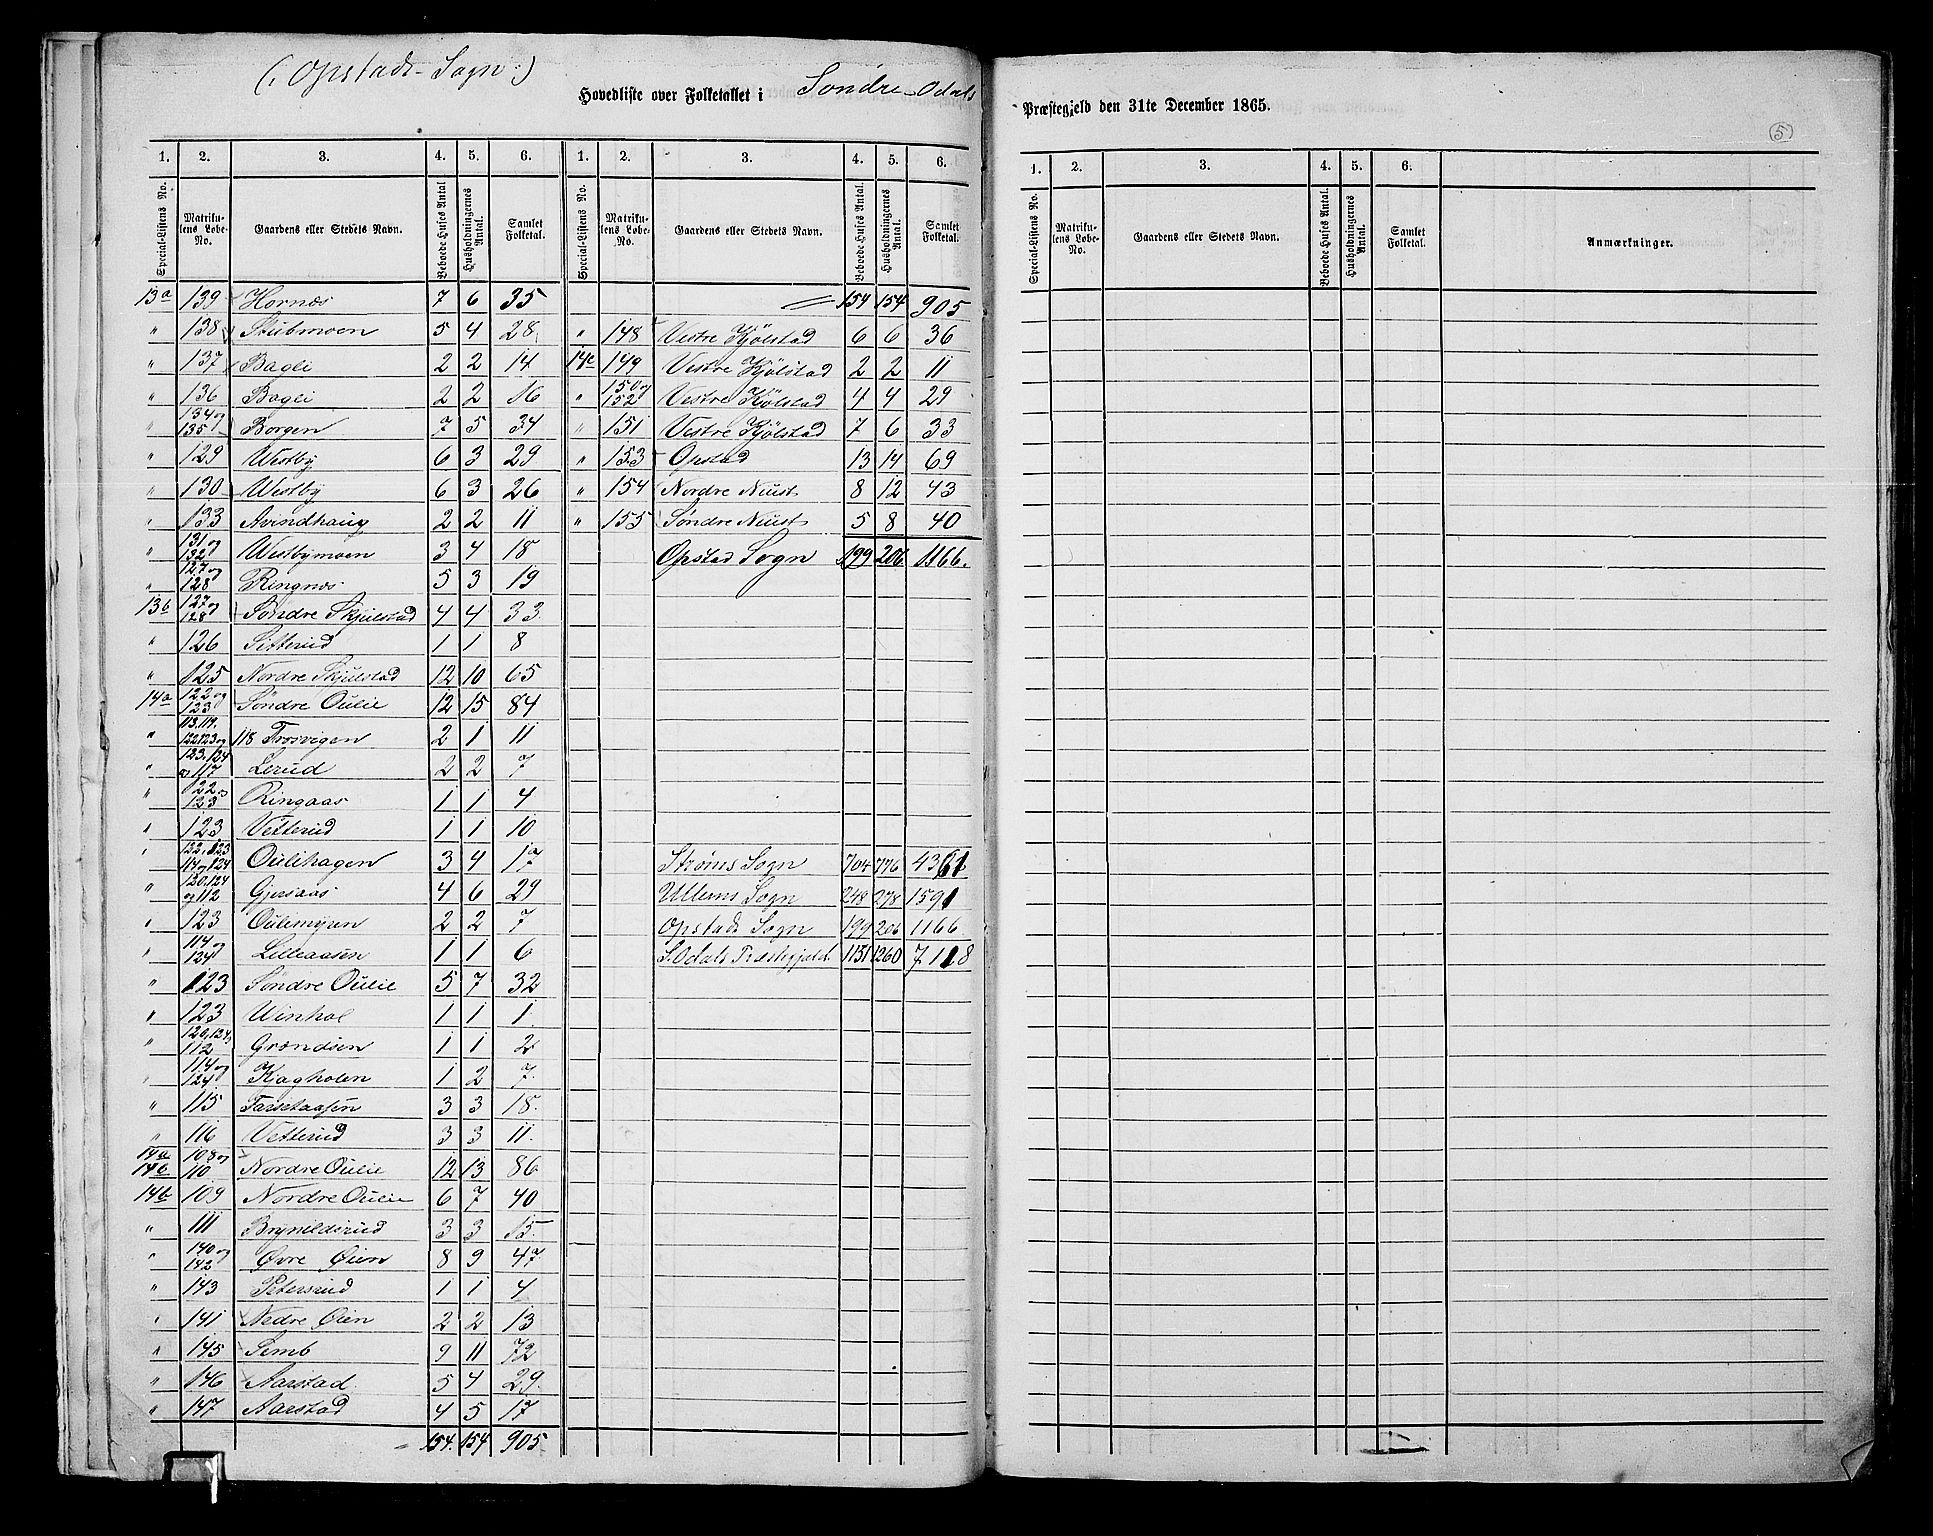 (: Opstads - Sogn :)
Hovedliste over Folketallet i Søndre - Odals
Præstegjeld den 31te December 1865.
5
1. 2. 3. 4. 5. 6. 1. 2. 3. 4. 5. 6.
Special-Listens No. Matrikulens Løbe-No. Gaardens eller Stedets Navn. Beboede Huses Antal Husholdningernes Antal. Samlet Folketal. Special-Listens No. Matrikulens Løbe-No. Gaardens eller Stedets Navn. Beboede Huses Antal. Husholdningernes Antal. Samlet Folketal.
13a 139 Hornæs 7 6 35
" 138 Stubmoen 5 4 28
" 137 Bagli 2 2 14
" 136 Bagli 2 2 16
" 134 og 135 Borgen 7 5 34
" 129 Westby 6 3 29
" 130 Westby 6 3 26
" 133 Avindhaug 2 2 11
" 131 og 132 Westbymoen 3 4 18
" 127 og 128 Ringnes 5 3 19
13b 127 og 128 Søndre Skjulstad 4 4 33
" 126 Sitterud 1 1 8
" 125 Nordre Skjulstad 12 10 65
14a 122 og 123 Søndre Oulie 12 15 84
" 113, 119, 122, 123 og 118 Trosvigen 2 1 11
" 123, 124 og 117 Lerud 2 2 7
" 122 og 123 Ringaas 1 1 4
" 123 Vetterud 1 1 10
" 122, 123 114 og 124 Oulihagen 3 4 17
" 120, 124 og 112 Gjersaas 4 6 29
" 123 Oulimyren 2 2 7
" 114 og 124 Lilleaasen 1 1 6
" 123 Søndre Oulie 5 7 32
" 123 Winhol 1 1 1
" 120, 124 og 112 Grændsen 1 1 2
" 114 og 124 Kjagholen 1 2 7
" 115 Tarsetaasen 3 3 18
" 116 Vetterud 3 3 11
14a 14b 108 og 110 Nordre Oulie 12 13 86
14b 109 Nordre Oulie 6 7 40
" 111 Brynildsrud 3 3 15
" 140 og 142 Øvre Øien 8 9 47
" 143 Petersrud 1 1 4
" 141 Nedre Øien 2 2 13
" 145 Semb 9 11 72
" 146 Aarstad 5 4 29
" 147 Aarstad 4 5 17
154. 154 905
154 154 905
" 148 Vestre Kjølstad 6 6 36
14c 149 Vestre Kjølstad 2 2 11
" 150 og 152 Vestre Kjølstad 4 4 29
" 151 Vestre Kjølstad 7 6 33
" 153 Opstad 13 14 69
" 154 Nordre Nust 8 12 43
" 155 Søndre Nust 5 8 40
Opstad Sogn 199 206 1166.
Strøms Sogn 704 776 4361
Ullerns Sogn 248 278 1591
Opstads Sogn 199 206 1166
S. Odals Præstegjeld 1151 1260 7118
1. 2. 3. 4. 5. 6.
Special-Listens No. Matrikulens Løbe-No. Gaardens eller Stedets Navn. Beboede Huses Antal. Husholdningernes Antal. Samlet Folketal. Anmærkninger.